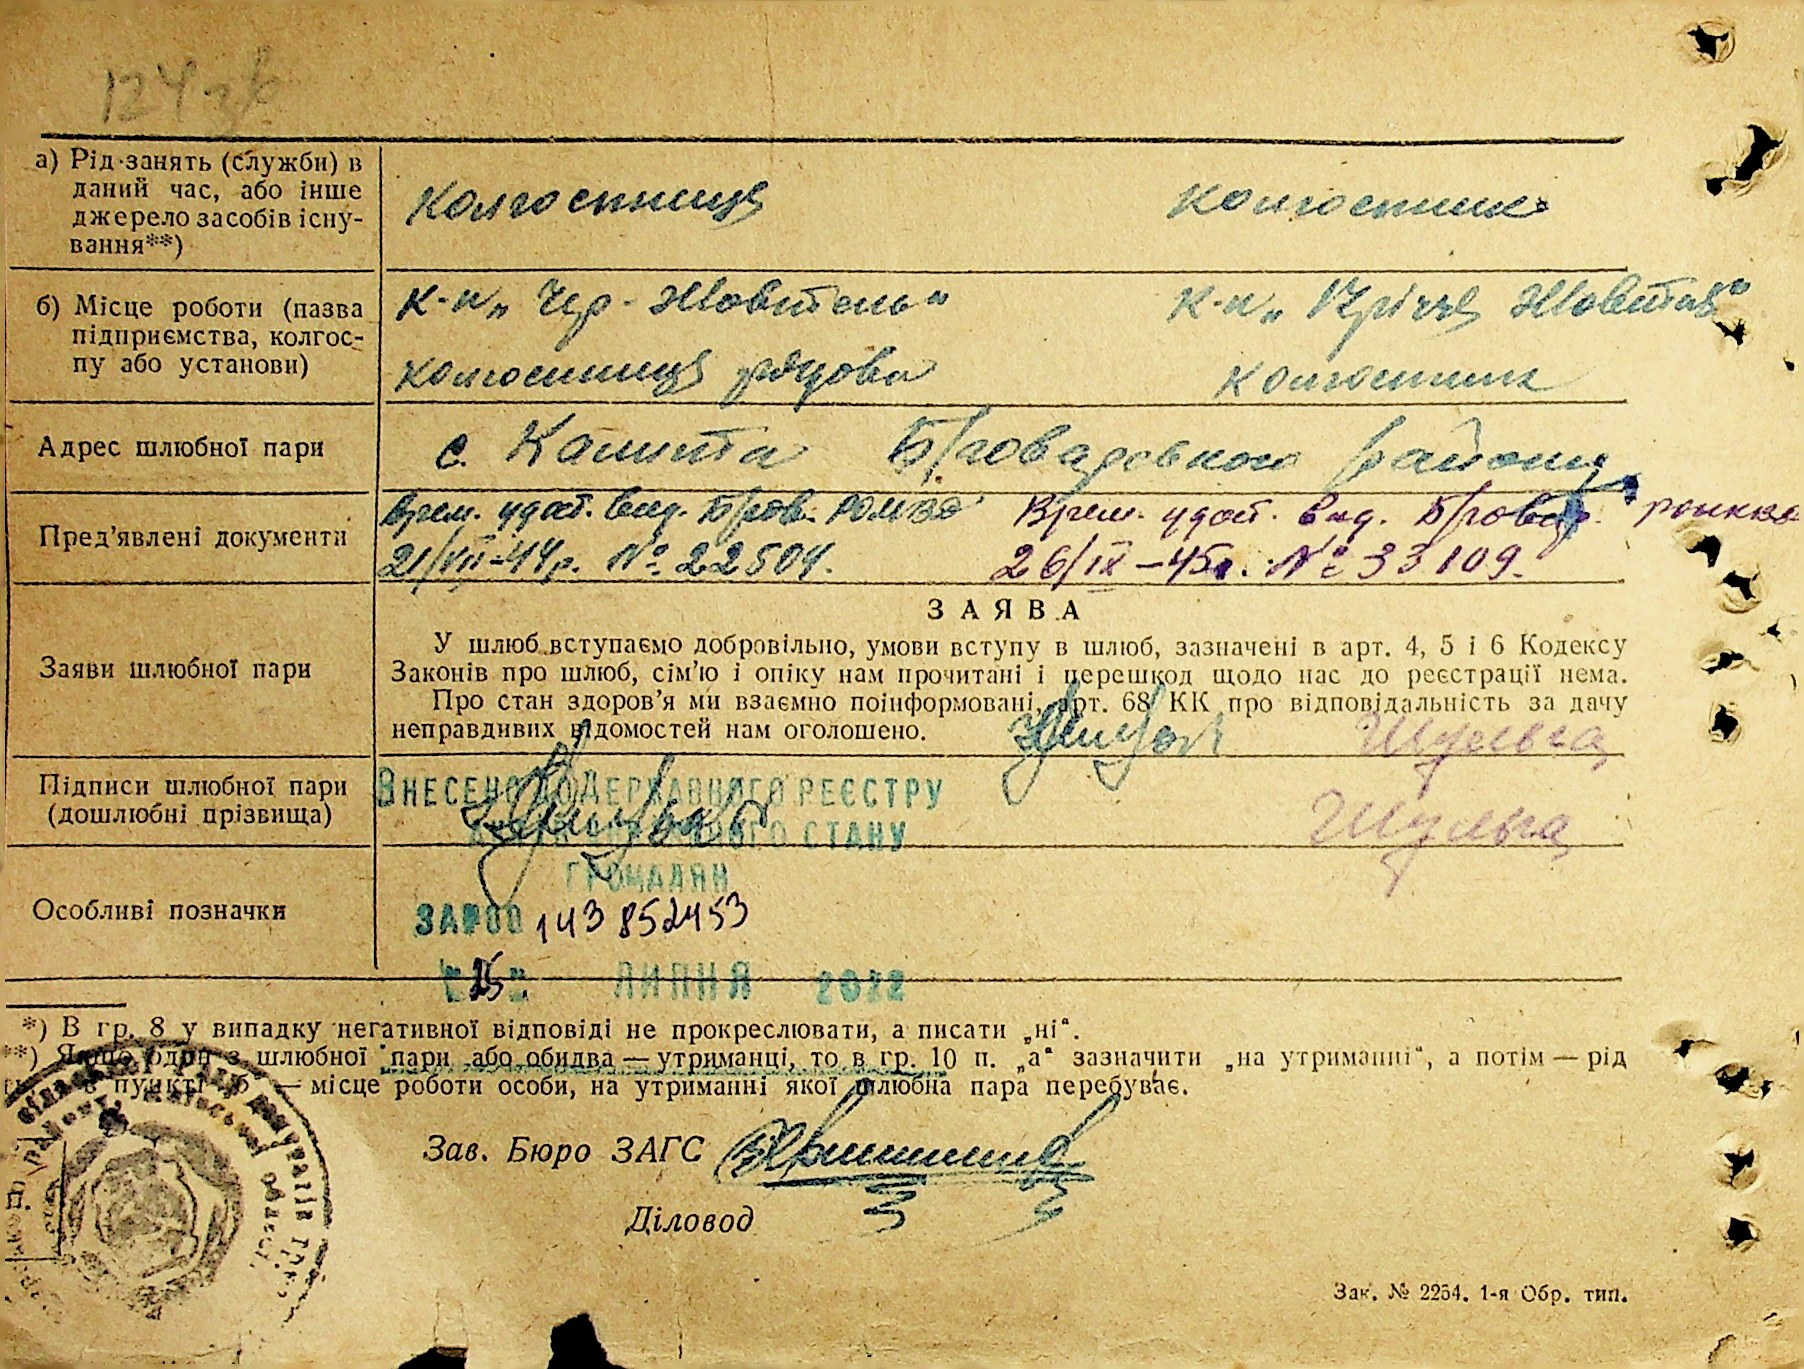 124
а) Рід занять (служби) в
даний час, або інше
джерело засобів існу-
вання**)
колгоспниця колгоспник
б) Місце роботи (назва
підприємства, колгос-
пу або установи)
к-п „Чер. Жовтень“ к-п „ Жовтня“
колгоспниця рядова колгоспник
Адрес шлюбної пари
с. Калита Броварського району
Пред’явлені документи
Врем. удост. вид. Бров. Врем. удост. вид. Бровар.
21/VII-44р. № 22504. 26/IX-45р. № 33109.
ЗАЯВА
Заяви шлюбної пари
У шлюб вступаємо добровільно, умови вступу в шлюб, зазначені в арт. 4, 5 і 6 Кодексу
Законів про шлюб, сім’ю і опіку нам прочитані і перешкод щодо нас до реєстрації нема.
Про стан здоров’я ми взаємно поінформовані, арт. 68 КК про відповідальність за дачу
неправдивих відомостей нам оголошено.
Шульга
Підписи шлюбної пари
(дошлюбні прізвища)
Шульга
ВНЕСЕНО ДО ДЕРЖАВНОГО РЕЄСТРУ
АКТІВ ЦИВІЛЬНОГО СТАНУ
ГРОМАДЯН
Особливі позначки
ЗА № 00143852453
25 ЛИПНЯ 2012
*) В гр. 8 у випадку негативної відповіді не прокреслювати, а писати „ні“.
**) Якщо один з шлюбної пари або обидва — утриманці, то в гр. 10 п. „а“ зазначити „на утриманні“, а потім — рід
в пункті „б“ — місце роботи особи, на утриманні якої шлюбна пара перебуває.
Зав. Бюро ЗАГС
Діловод
Зак. № 2254. 1-я Обр. тип.